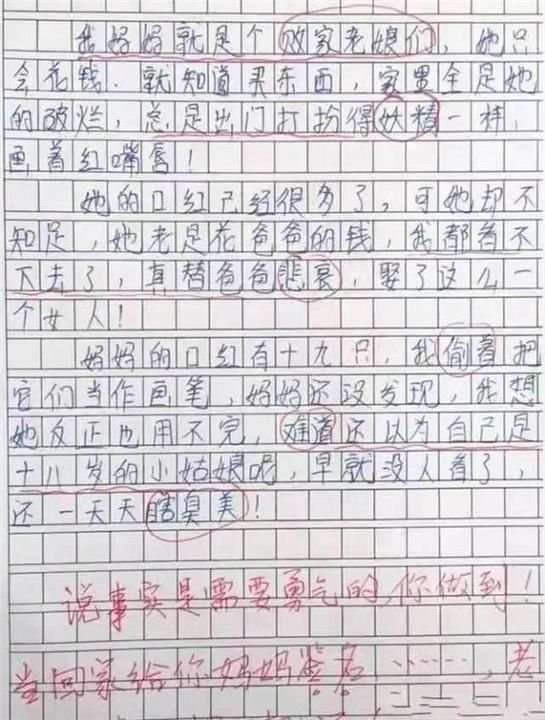 我妈妈就是个败家老娘们，她只
会花钱．就知道买东西，家里全是她
的破烂，总是出门打扮得妖精一样，
画着红嘴唇！
她的口红已经很多了，可她却不
知足，她老是花爸爸的钱，我都看不
下去了，真替爸爸悲哀，娶了这么一
个女人！
妈妈的口红有十九只，我偷着把
它们当作画笔，妈妈还没发现，我想
她反正也用不完，难道还以为自己是
十八岁的小姑娘呢，早就没人看了，
还一天天瞎臭美！
说事实是需要勇气的，你做到！
回家给你妈妈签名……，老